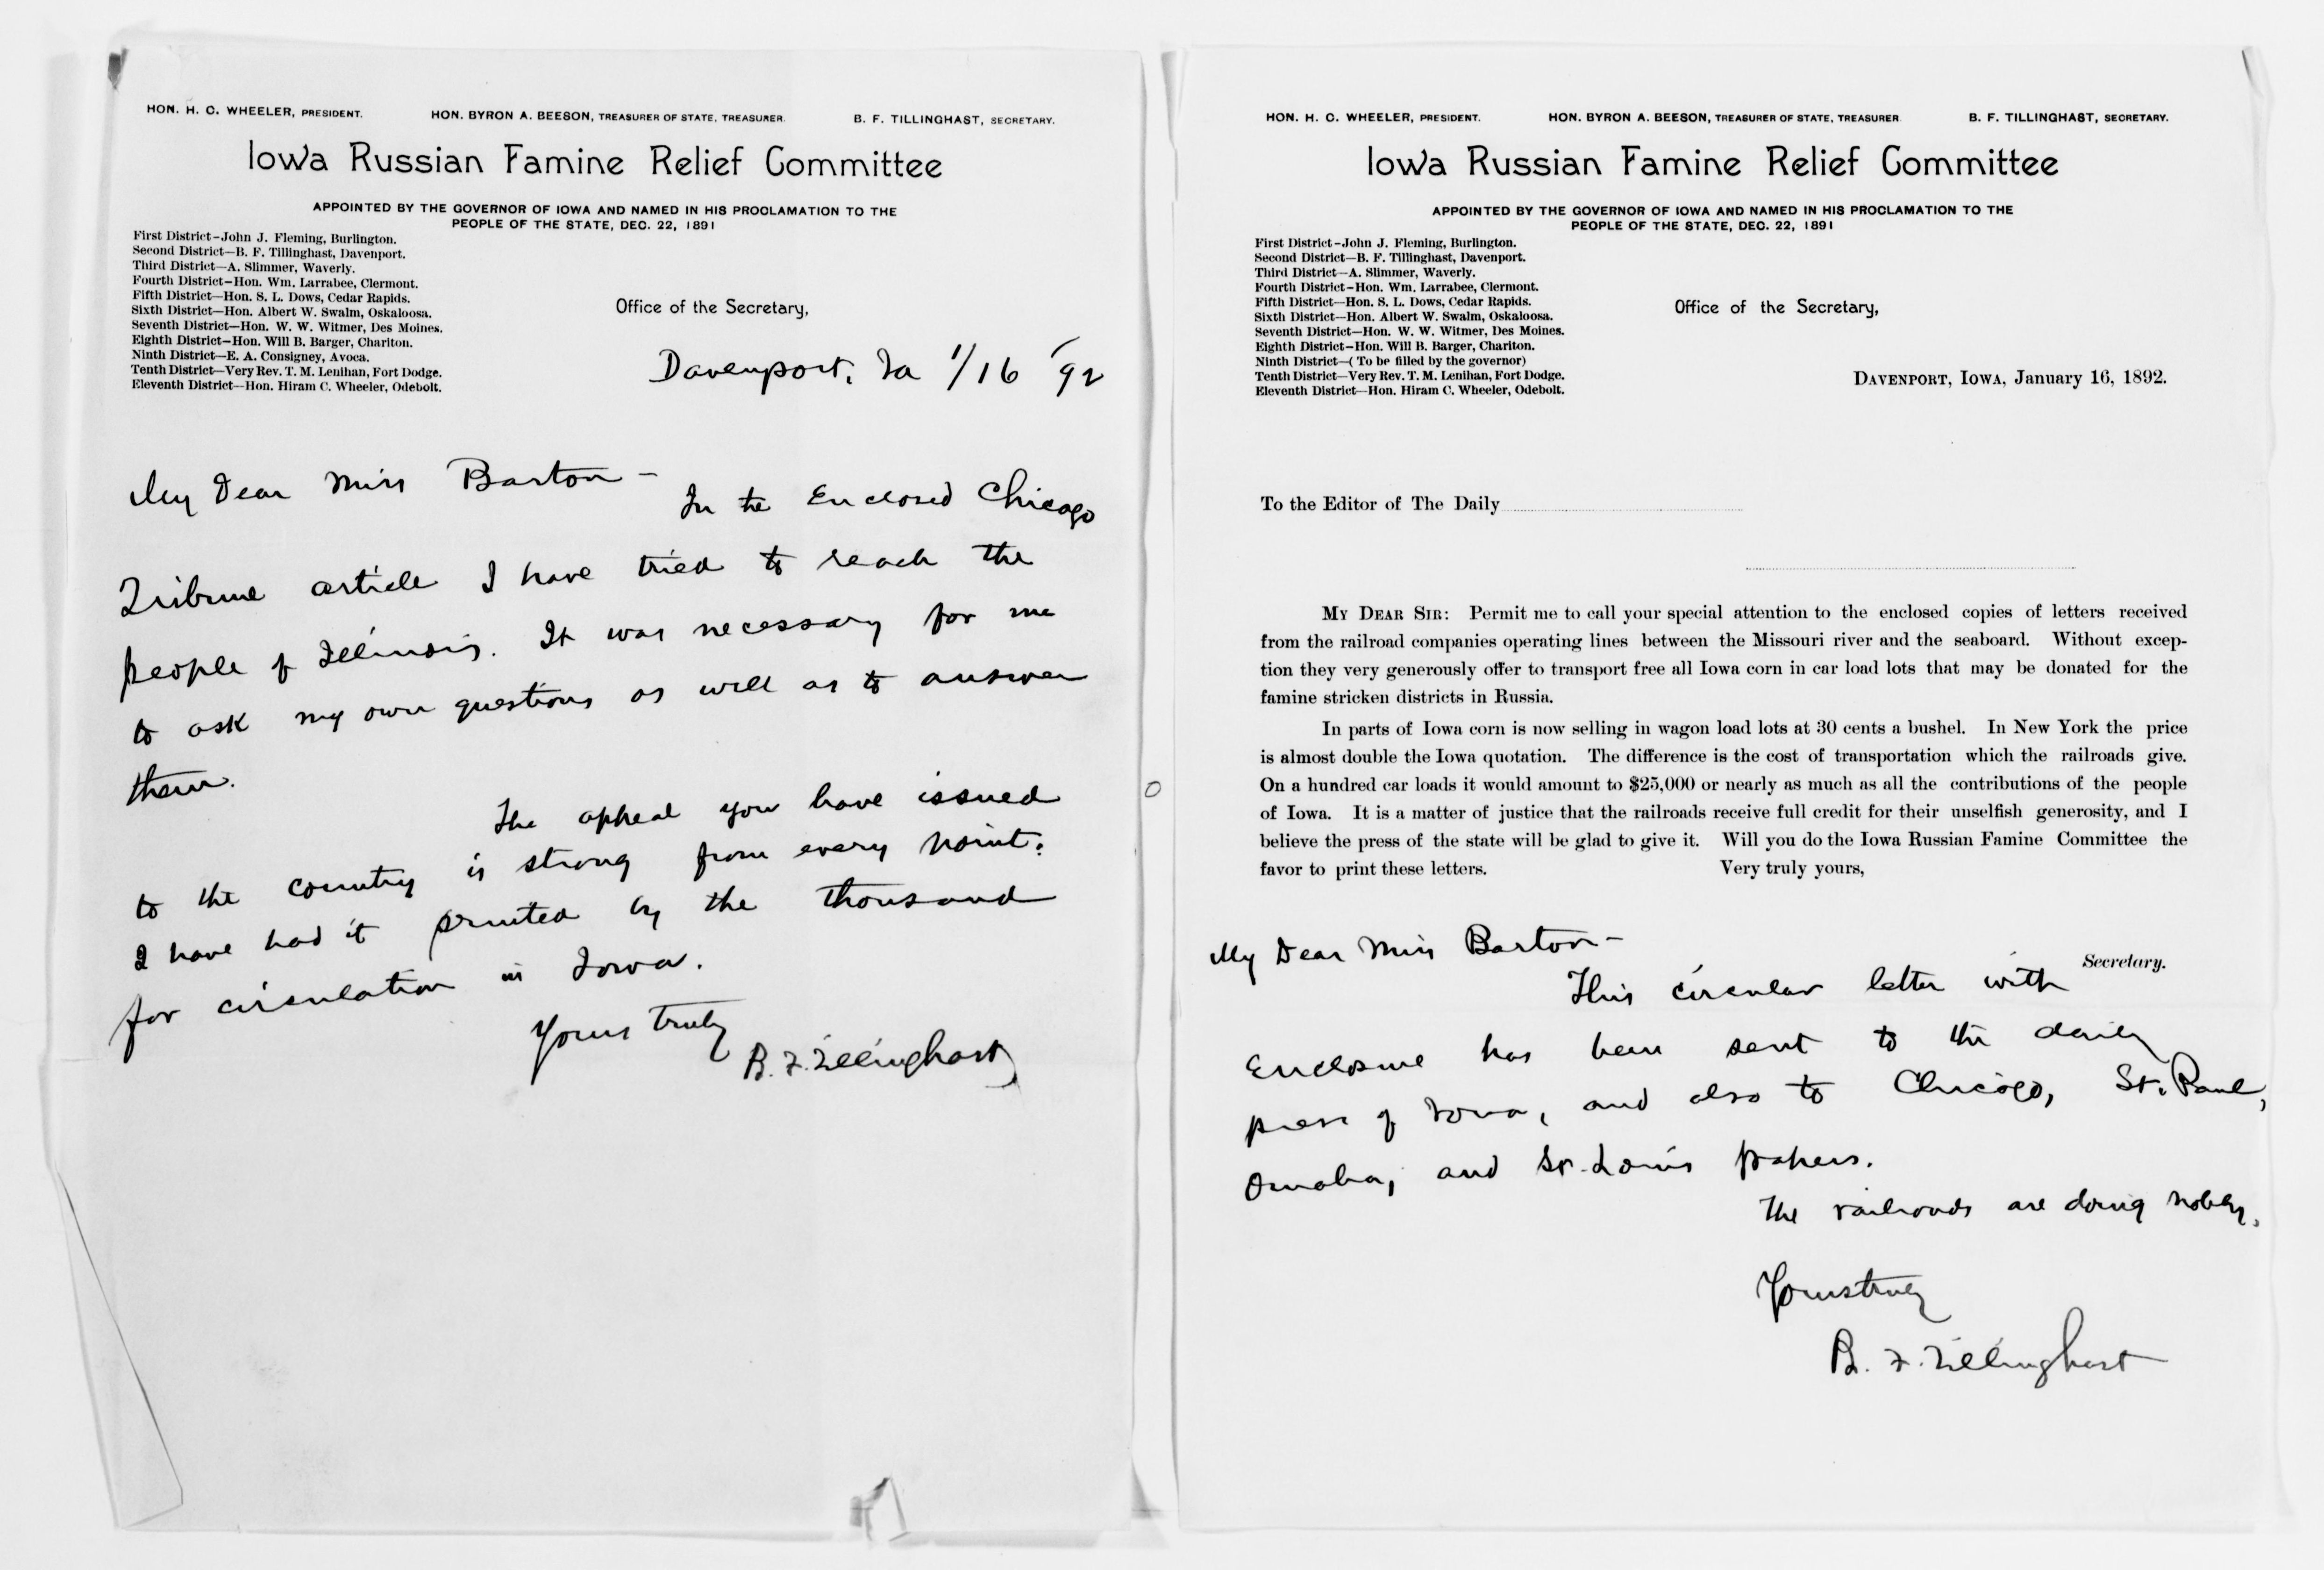 HON. H. C. WHEELER, PRESIDENT. HON. BYRON A. BEESON, TREASURER OF STATE, TREASURER. B. F. TILLINGHAST, SECRETARY.
Iowa Russian Famine Relief Committee
APPOINTED BY THE GOVERNOR OF IOWA AND NAMED IN HIS PROCLAMATION TO THE
PEOPLE OF THE STATE, DEC. 22, 1891
First District–John J. Fleming, Burlington.
Second District—B. F. Tillinghast, Davenport.
Third District—A. Slimmer, Waverly.
Fourth District–Hon. Wm. Larrabee, Clermont.
Fifth District—Hon. S. L. Dows, Cedar Rapids.
Sixth District—Hon. Albert W. Swalm, Oskaloosa.
Seventh District—Hon. W. W. Witmer, Des Moines.
Eighth District–Hon. Will B. Barger, Chariton.
Ninth District—E. A. Consigney, Avoca.
Tenth District—Very Rev. T. M. Lenihan, Fort Dodge.
Eleventh District—Hon. Hiram C. Wheeler, Odebolt.
Office of the Secretary,
Davenport, Ia 1/16 '92
My Dear Miss Barton –
In the Enclosed Chicago
Tribune article I have tried to reach the
people of Illinois. It was necessary for me
to ask my own questions as well as to answer
them.
The appeal you have issued
to the country is strong from every point.
I have had it printed by the thousand
for circulation in Iowa.
Yours truly
B. F. Tillinghast
HON. H. C. WHEELER, PRESIDENT. HON. BYRON A. BEESON, TREASURER OF STATE, TREASURER. B. F. TILLINGHAST, SECRETARY.
Iowa Russian Famine Relief Committee
APPOINTED BY THE GOVERNOR OF IOWA AND NAMED IN HIS PROCLAMATION TO THE
PEOPLE OF THE STATE, DEC. 22, 1891
First District–John J. Fleming, Burlington.
Second District—B. F. Tillinghast, Davenport.
Third District—A. Slimmer, Waverly.
Fourth District–Hon. Wm. Larrabee, Clermont.
Fifth District—Hon. S. L. Dows, Cedar Rapids.
Sixth District—Hon. Albert W. Swalm, Oskaloosa.
Seventh District—Hon. W. W. Witmer, Des Moines.
Eighth District–Hon. Will B. Barger, Chariton.
Ninth District—( To be filled by the governor)
Tenth District—Very Rev. T. M. Lenihan, Fort Dodge.
Eleventh District—Hon. Hiram C. Wheeler, Odebolt.
Office of the Secretary,
DAVENPORT, IOWA, January 16, 1892.
To the Editor of The Daily
MY DEAR SIR: Permit me to call your special attention to the enclosed copies of letters received
from the railroad companies operating lines between the Missouri river and the seaboard. Without excep-
tion they very generously offer to transport free all Iowa corn in car load lots that may be donated for the
famine stricken districts in Russia.
In parts of Iowa corn is now selling in wagon load lots at 30 cents a bushel. In New York the price
is almost double the Iowa quotation. The difference is the cost of transportation which the railroads give.
On a hundred car loads it would amount to $25,000 or nearly as much as all the contributions of the people
of Iowa. It is a matter of justice that the railroads receive full credit for their unselfish generosity, and I
believe the press of the state will be glad to give it. Will you do the Iowa Russian Famine Committee the
favor to print these letters. Very truly yours,
Secretary.
My Dear Miss Barton–
This circular letter with
Enclosure has been sent to the daily
press of Iowa, and also to Chicago, St. Paul,
Omaha, and St. Louis papers.
The railroads are doing nobly.
Yours truly
B. F. Tillinghast